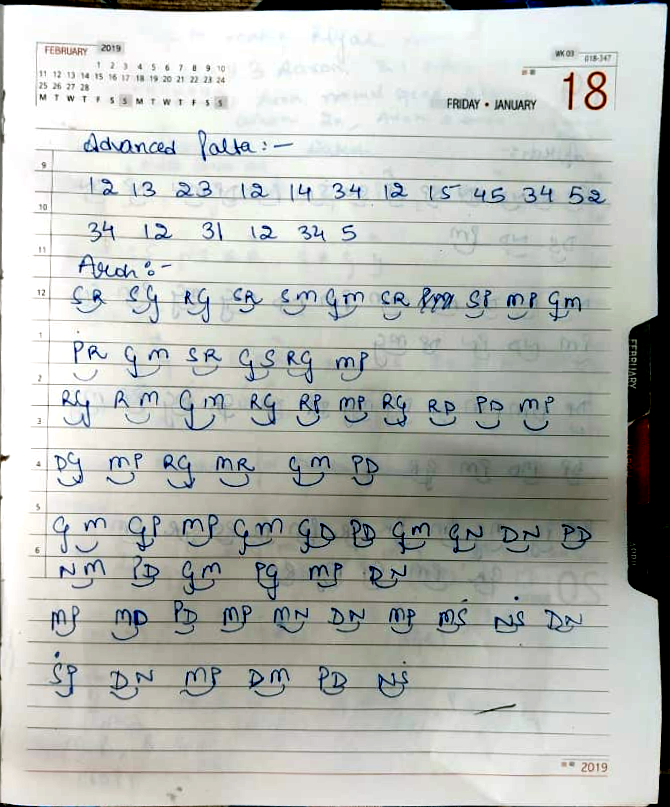 FEBRUARY 2019
1 2 3 4 5 6 7 8 9 10
11 12 13 14 15 16 17 18 19 20 21 22 23 24
25 26 27 28
M T W T F S S M T W T F S S M T W T F S S M T W T F S S
WK 03 018-347
FRIDAY • JANUARY 18
Advanced Palta :-
9
12 13 23 12 14 34 12 15 45 34 52
10
34 12 31 12 34 5
11
Aroh :-
12
SR SG RG SR SM GM SR SP MP GM
1
PR GM SR GS RG MP
2
RG RM GM RG RP MP RG RD PD MP
3
4 DG MP RG MR GM PD
5
GM GP MP GM GD PD GM GN DN PD
6
NM PD GM PG MP DN
MP MD PD MP MN DN MP MṠ NṠ DN
ṠP DN MP DM PD NṠ
2019
FEBRUARY